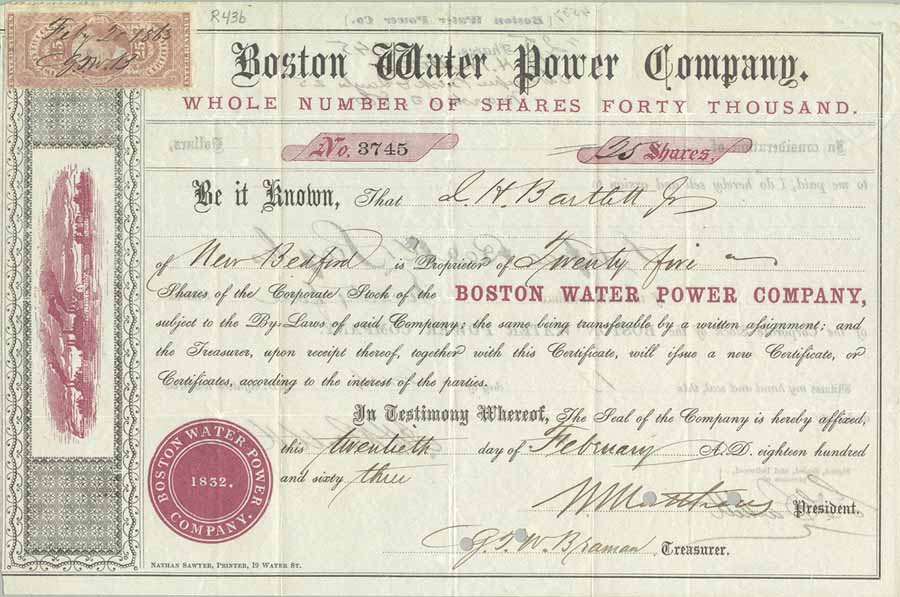 R43b
Feby 20 1863
25 25
Boston Water Power Company.
WHOLE NUMBER OF SHARES FORTY THOUSAND.
No. 3745
25 Shares.
Be it Known, That I. H. Bartlett Jr
of New Bedford is Proprietor of Twenty five
Shares of the Corporate Stock of the BOSTON WATER POWER COMPANY,
subject to the By-Laws of said Company; the same being transferable by a written assignment; and
the Treasurer, upon receipt thereof, together with this Certificate, will issue a new Certificate, or
Certificates, according to the interest of the parties.
In Testimony Whereof, The Seal of the Company is hereby affixed,
this twentieth day of February A.D. eighteen hundred
and sixty three
BOSTON WATER POWER COMPANY.
1832.
N Matthews President.
G. T. W. Braman Treasurer.
NATHAN SAWYER, PRINTER, 19 WATER ST.